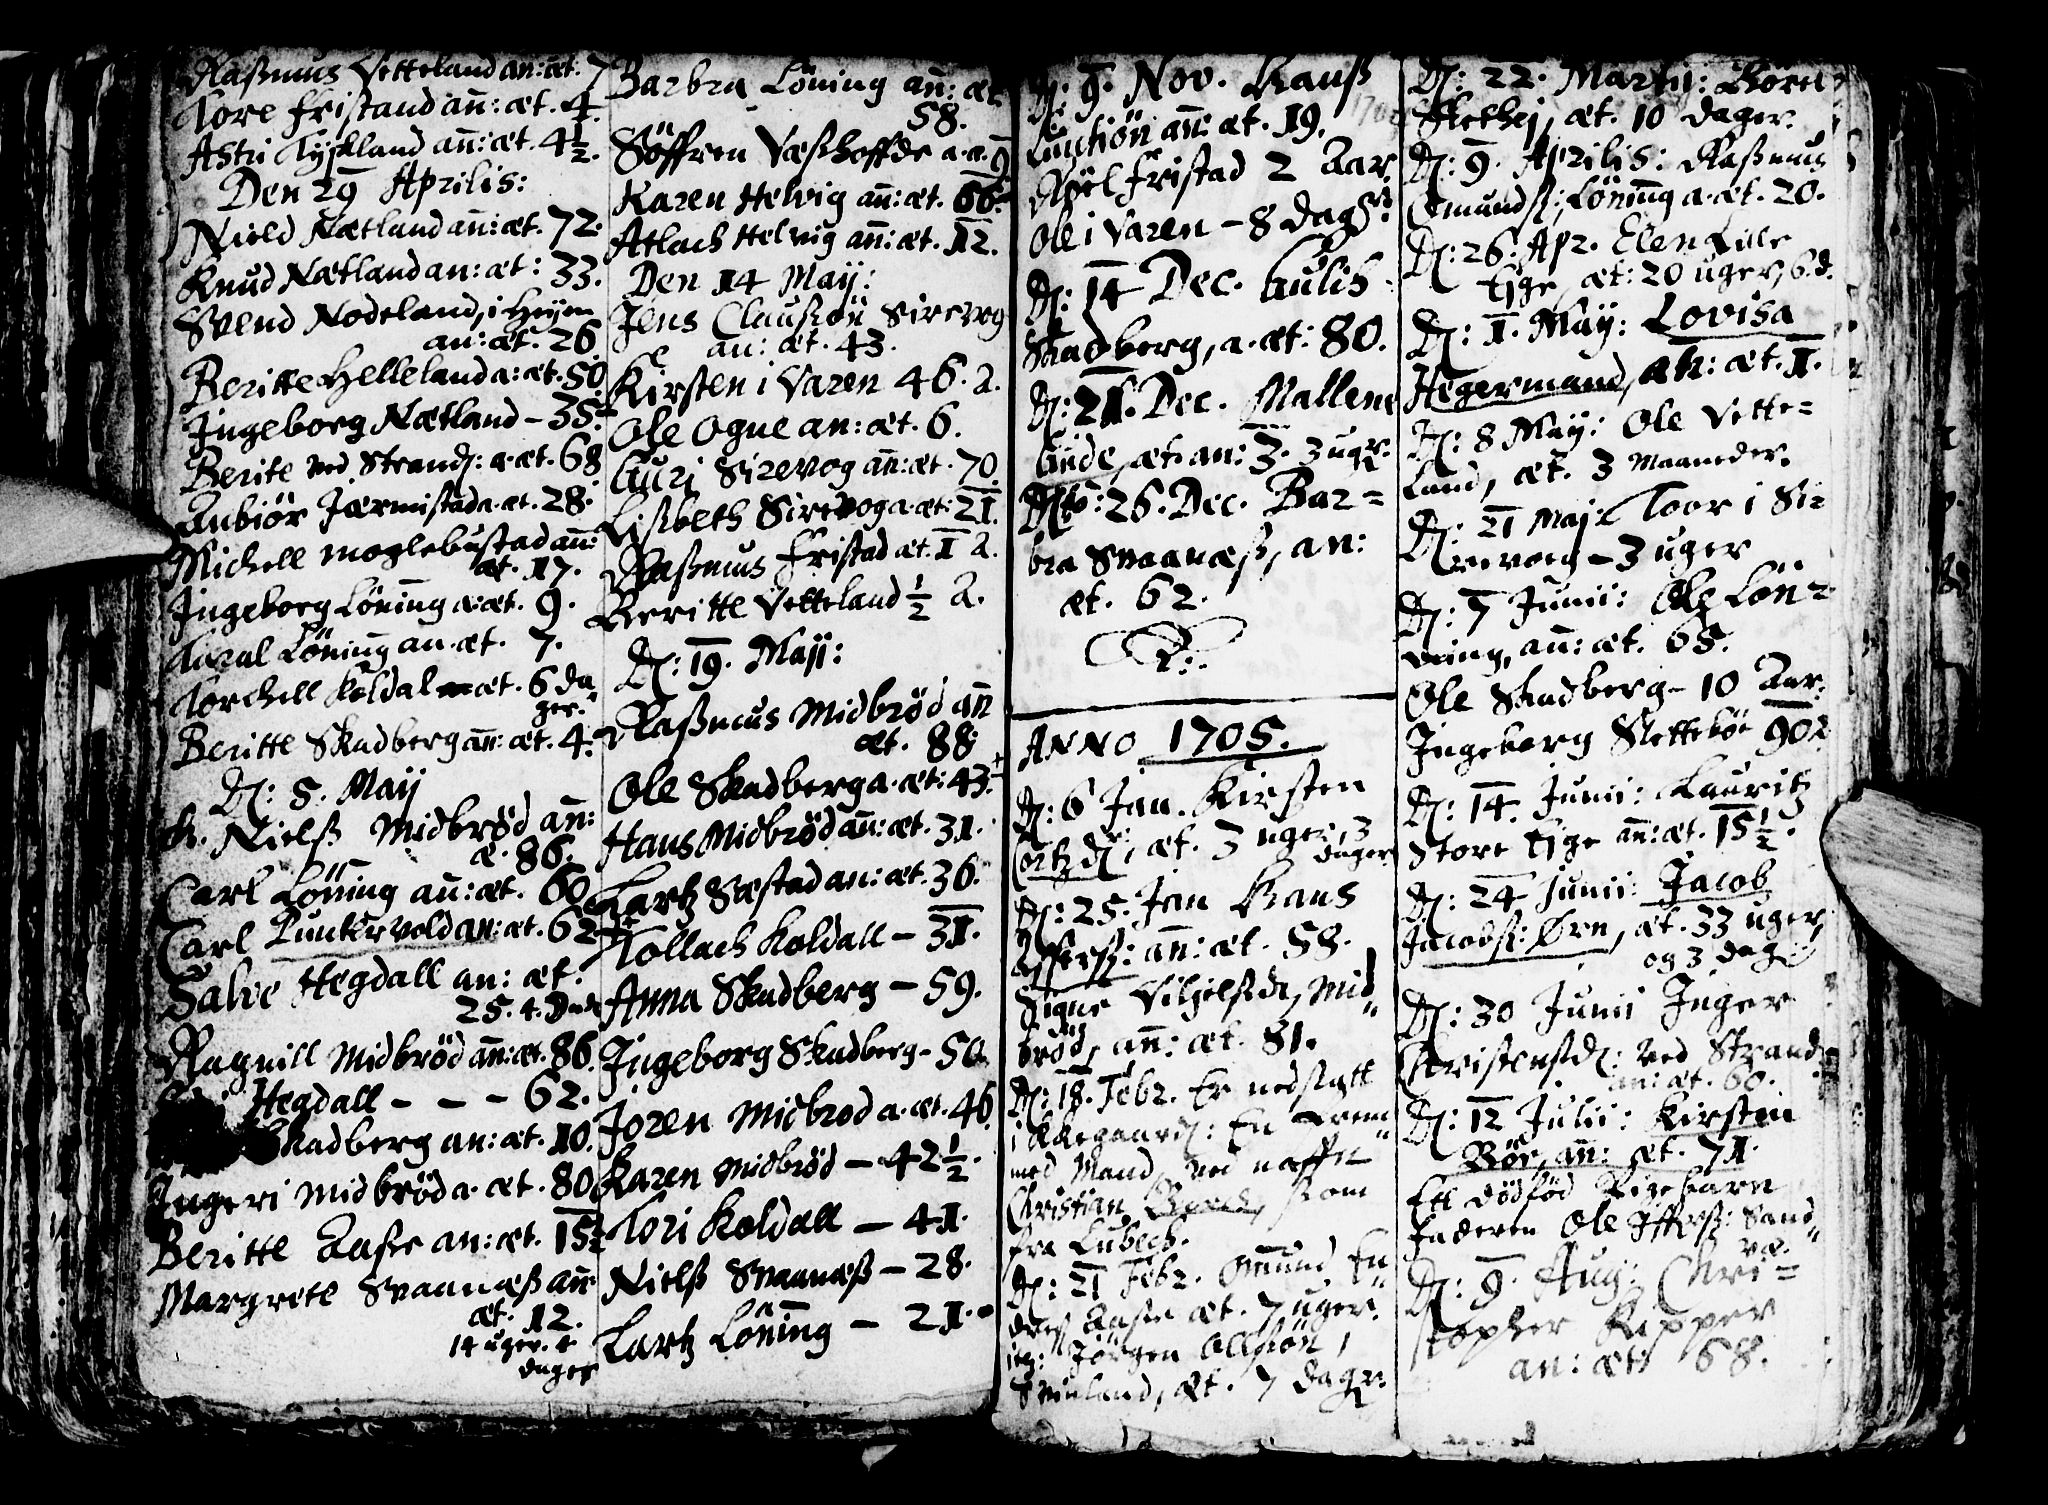 Rasmus Vetteland an: æt. 7
Tore Fristand añ: æt. 4.
Astri Tyskland añ: æt. 4½.
Den 29 Aprilis:
Nield Nætland añ: æt. 72.
Knud Nætland an: æt: 33.
Svend Nodeland, i Heyen
an: æt. 26
Beritte Helleland a: æt. 50
Ingeborg Nætland – 35.
Berite ved Strand: a. æt. 68
Anbiör Jærmistad a. æt. 28.
Michell Moglebustad añ:
æt. 17.
Ingeborg Löning a. æt. 9.
Löning an. æt. 7.
Torchell Koldal æt. 6 da
ger.
Beritte Skadberg añ: æt. 4.
D: 5. May
Nielß Midbröd añ:
æ. 86.
Carl Löning añ: æt. 60
Carl Lunkervold an: æt. 62
Salve Hegdall an: æt:
25. 4.
Ragnill Midbröd añ: æt. 86.
Hegdall – – – 62.
Skadberg an: æt. 10.
Ingeri Midbröd a. æt. 80
Beritte Aase an: æt. 15½
Margrete Svaanæß añ
æt. 12.
14 uger. 4
dager
Barbra Löning añ: æt
58.
Söffren Væshoffde a. æ. 9
Karen Helvig añ: æt. 66.
Atlach Helvig añ: æt. 12.
Den 14 May:
Jens Claussön Sirevog
an: æt. 43.
Kirsten i Varen 46. a.
Ole Ogne an: æt. 6.
Guri Sirevog añ: æt. 70.
Lisbeth Sirevog a. æt: 21.
Rasmus Fristad æt. 1 a.
Beritte Vetteland ½ a.
D: 19. Maji:
Rasmus Midbröd añ
æt. 88.
Ole Skadberg a. æt: 43.
Hans Midbröd añ: æt. 31.
Lartz Sæstad an: æt. 36.
Tollach Koldall – 31.
Anna Skadberg – 59.
Ingeborg Skadberg – 50.
Joren Midbrod a. æt. 46.
Karen Midbröd – 42½.
Tori Koldall – 41.
Nielß Svaanæß – 28.
Lartz Löning – 21.
D: 9. Nov. Hans
añ: æt. 19.
Fristad 2 Aar.
Ole i Varen – 8 dager.
D: 14 Dec. Gulib
Skadberg, a. æt: 80.
D: 21. Dec. Mallene
Gude, æt. an: 3. 3 uger.
26. Dec. Bar=
bra Svaanæß, an:
æt. 62.
ANNO 1705.
D: 6 Jan. Kirsten
æt. 3 uger, 3
dager
D: 25. Jan Hans
añ: æt. 58.
Signe Mid
bröd, añ: æt. 81.
D: 18. Febr. Er nedsatt
i Kirkegaard: En frem
med Mand, ved naffn
Christian som
fra Lübech.
D: 21 Febr. Omund En
dres Aase æt. 7 uger.
Jörgen Ollsön,
æt. 7 dager.
D: 22. Martii:
æt. 10 dager.
D: 9. Aprilis: Rasmus
Omunds: Löning a. æt. 20.
D: 26. Apr. Elen Lille
Eige æt: 20 uger, 6. d.
D: 1. May: Lovisa
Hegermand, an: æt. 1.
D: 8 May: Ole Vette=
land, æt. 3 Maaneder.
D: 21 Maj: Toor i Si=
revoeg – 3 uger
D: 7 Junii: Ole Lön=
ning, añ: æt. 68.
Ole Skadberg – 10 Aar.
Ingeborg Sletteböe 90 a
D: 14 Junii: Lauritz
Store Eige añ: æt. 15½.
D: 24 Junii: Jacob
Jacobs: Örn, æt. 33 uger,
og 3 dag:
D: 30 Junii Inger
Christensd: ved Strand
an: æt. 60.
D: 12 Julii: Kirsten
Böe, añ: æt. 71.
Ett dödföd Pigebarn
Faderen Ole Sand
væ.
D: 9. Aug: Chri=
stopher Kipper
an: æt: 58.